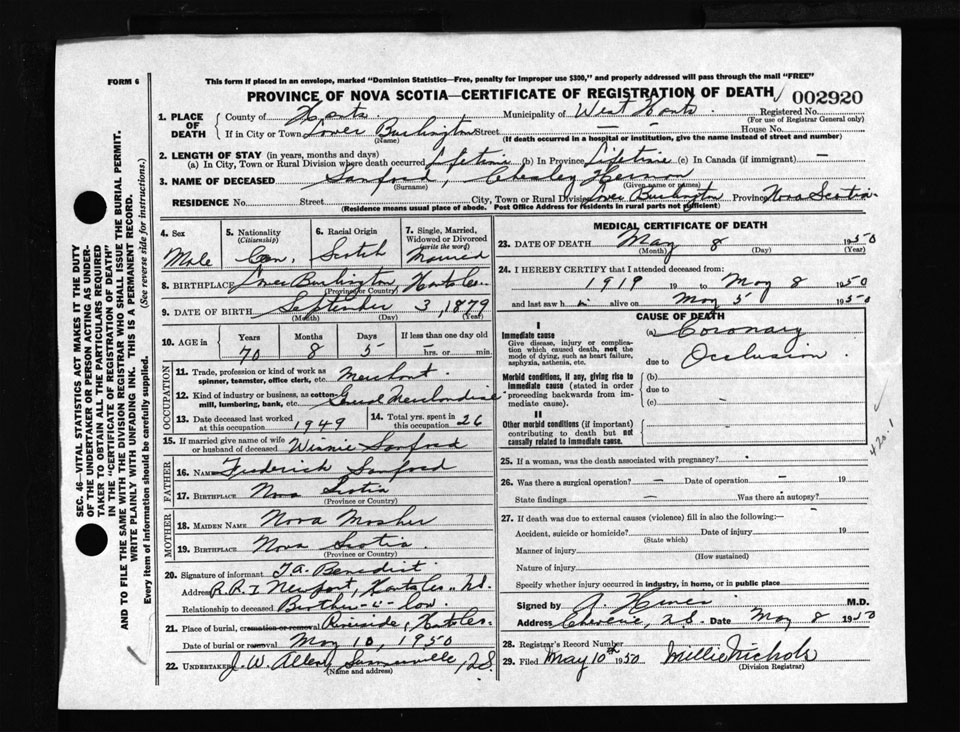 FORM 6
This form if placed in an envelope, marked "Dominion Statistics—Free, penalty for improper use $300," and properly addressed will pass through the mail "FREE"
PROVINCE OF NOVA SCOTIA—CERTIFICATE OF REGISTRATION OF DEATH
002920
1. PLACE OF DEATH
County of Hants Municipality of West Hants. Registered No.
(For use of Registrar General only)
If in City or Town Lower Burlington Street — — House No.
(Name) (If death occurred in a hospital or institution, give the name instead of street and number)
2. LENGTH OF STAY (in years, months and days)
(a) In City, Town or Rural Division where death occurred Lifetime (b) In Province Lifetime (c) In Canada (if immigrant) —
3. NAME OF DECEASED Sanford, Chesley Hermon
(Surname) (Given name or names)
RESIDENCE No. Street City, Town or Rural Division Lower Burlington Province Nova Scotia.
(Residence means usual place of abode. Post Office Address for residents in rural parts not sufficient)
4. Sex Male
5. Nationality (Citizenship) Can.
6. Racial Origin Scotch
7. Single, Married, Widowed or Divorced (write the word) Married
8. BIRTHPLACE Lower Burlington, Hants Co.
(Province or Country)
9. DATE OF BIRTH September 3, 1879
(Month) (Day) (Year)
10. AGE in Years Months Days If less than one day old
70 8 5 — hrs. or min.
OCCUPATION
11. Trade, profession or kind of work as spinner, teamster, office clerk, etc. Merchant.
12. Kind of industry or business, as cotton-mill, lumbering, bank, etc. General Merchandise
13. Date deceased last worked at this occupation 1949
14. Total yrs. spent in this occupation 26
15. If married give name of wife or husband of deceased Winnie Sanford
FATHER
16. NAME Frederick Sanford
17. BIRTHPLACE Nova Scotia
(Province or Country)
MOTHER
18. MAIDEN NAME Nora Mosher
19. BIRTHPLACE Nova Scotia.
(Province or Country)
20. Signature of informant J.A. Benedict
Address R.R. 1 Newport, Hants Co. N.S.
Relationship to deceased Brother-in-law
21. Place of burial, cremation or removal Riverside, Hants Co.
Date of burial or removal May 10, 1950
22. UNDERTAKER J. W. Allen, Summerville, N.S.
(Name and address)
MEDICAL CERTIFICATE OF DEATH
23. DATE OF DEATH May 8 1950
(Month) (Day) (Year)
24. I HEREBY CERTIFY that I attended deceased from:
1919 19 to May 8 1950
and last saw h i alive on May 5 1950
CAUSE OF DEATH
I
Immediate cause
Give disease, injury or complication which caused death, not the mode of dying, such as heart failure, asphyxia, asthenia, etc.
(a) Coronary
due to Occlusion.
Morbid conditions, if any, giving rise to immediate cause (stated in order proceeding backwards from immediate cause).
(b) —
due to —
(c) —
II
Other morbid conditions (if important) contributing to death but not causally related to immediate cause.
420.1
25. If a woman, was the death associated with pregnancy?
26. Was there a surgical operation? — Date of operation — 19
State findings — Was there an autopsy?
27. If death was due to external causes (violence) fill in also the following:—
Accident, suicide or homicide? Date of injury 19
(State which)
Manner of injury
(How sustained)
Nature of injury
Specify whether injury occurred in industry, in home, or in public place
Signed by A. Hines M.D.
Address Cheverie, N.S. Date May 8 1950
28. Registrar's Record Number
29. Filed May 10th 1950 Millie Nichols
(Division Registrar)
SEC. 46—VITAL STATISTICS ACT MAKES IT THE DUTY
OF THE UNDERTAKER OR PERSON ACTING AS UNDERTAKER
TO OBTAIN ALL THE PARTICULARS REQUIRED
IN THE "CERTIFICATE OF REGISTRATION OF DEATH"
AND TO FILE THE SAME WITH THE DIVISION REGISTRAR WHO SHALL ISSUE THE BURIAL PERMIT.
WRITE PLAINLY WITH UNFADING INK. THIS IS A PERMANENT RECORD.
Every item of information should be carefully supplied. (See reverse side for instructions.)